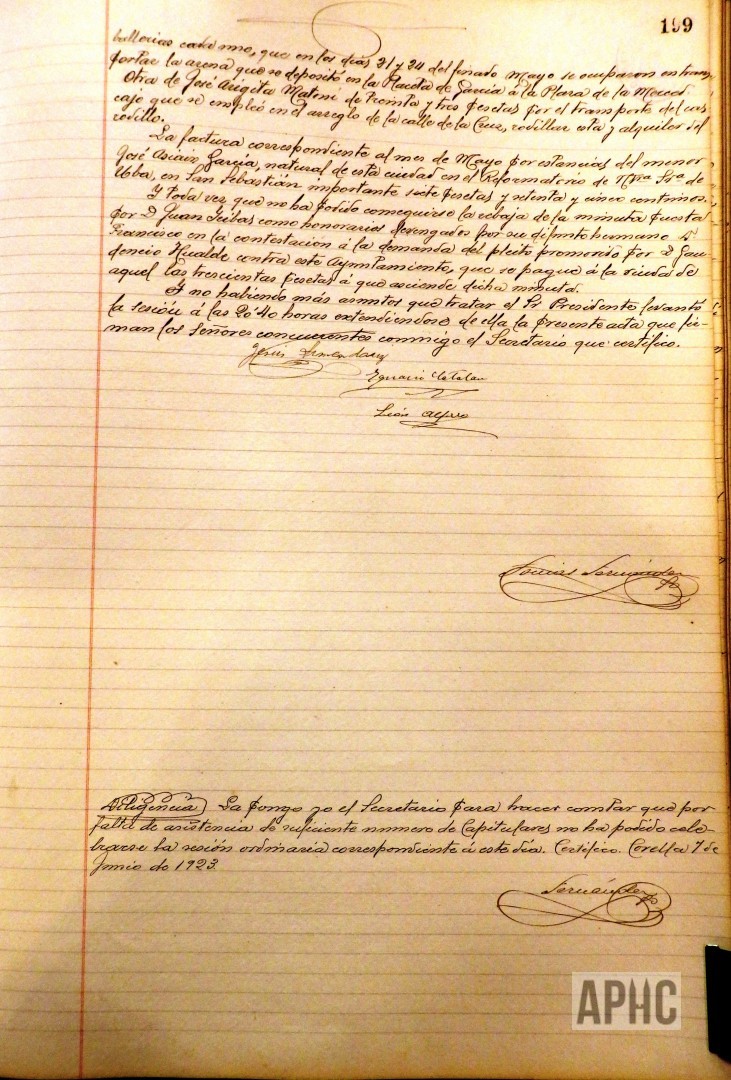 199
ballerias cada uno, que en los dias 21 y 24 del finado Mayo se ocuparon en trans-
portar la arena que se depositó en la Placeta de García á la Plaza de la Merced
Otra de José Arigita Matini de treinta y tres pesetas por el transporte del cas
cajo que se empleó en el arreglo de la calle de la Cruz, rodillar esta y alquiler del
rodillo.
La factura correspondiente al mes de Mayo por estancias del menor
José García, natural de esta ciudad en el Reformatorio de Ntra Sra de
Uba, en San Sebastián importante siete pesetas y setenta y cinco centimos.
Y toda vez que no ha podido conseguirse la rebaja de la minuta puesta
por D Juan Seibas como honorarios devengados por su difunto hermano D
Francisco en la contestación á la demanda del pleito promovido por D Gau
dencio Hualde contra este Ayuntamiento, que se pague á la viuda de
aquel las trescientas pesetas á que asciende dicha minuta.
Y no habiendo más asuntos que tratar el Sr Presidente levantó
la sesión á las 20'40 horas extendiendose de ella la presente acta que fir-
man los Señores concurrentes conmigo el Secretario que certifico.
Jesús
Ignacio Catalan
León
Fernández
Diligencia) La pongo yo el Secretario para hacer constar que por
falta de asistencia de suficiente número de Capitulares no ha podido cele-
brarse la sesión ordinaria correspondiente á este día. Certifico. Corella 7 de
Junio de 1923.
Fernández
APHC